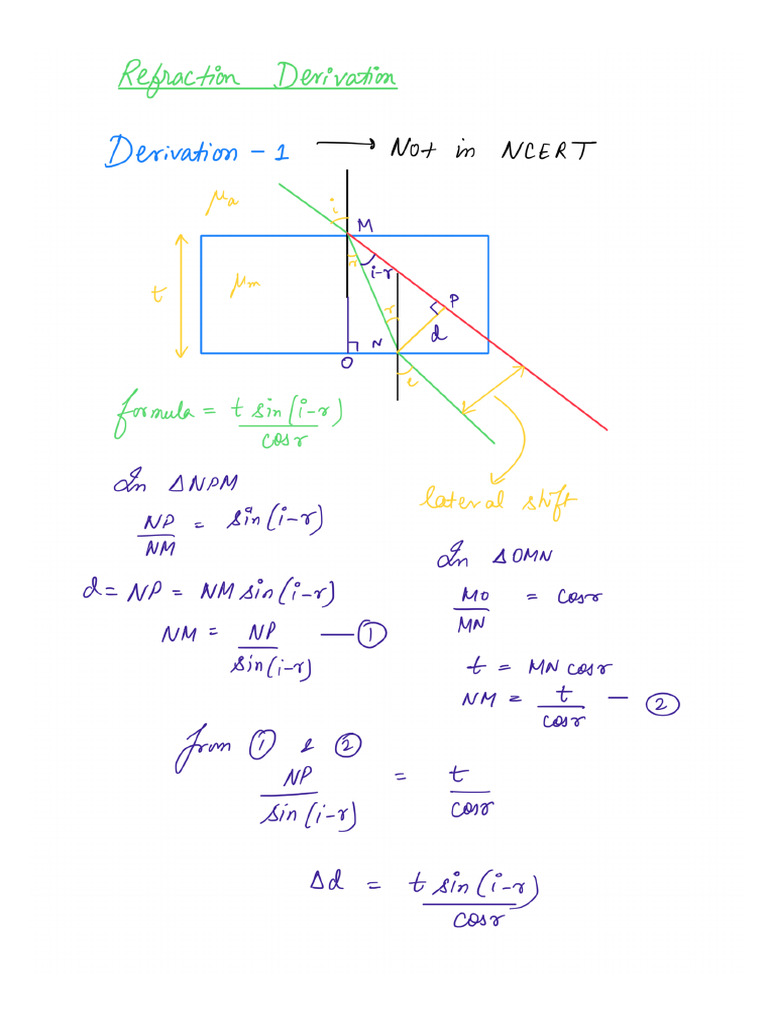 Refraction Derivation
Derivation - 1 → Not in NCERT
μa
i
M
r
i-r
t
μm
r
P
d
N
O
e
formula = t sin(i-r)
cosr
lateral shift
In △NPM
NP = sin(i-r)
NM
d = NP = NM sin(i-r)
NM = NP — ①
sin(i-r)
In △OMN
MO = cosr
MN
t = MN cosr
NM = t — ②
cosr
from ① & ②
NP = t
sin(i-r) cosr
Δd = t sin(i-r)
cosr